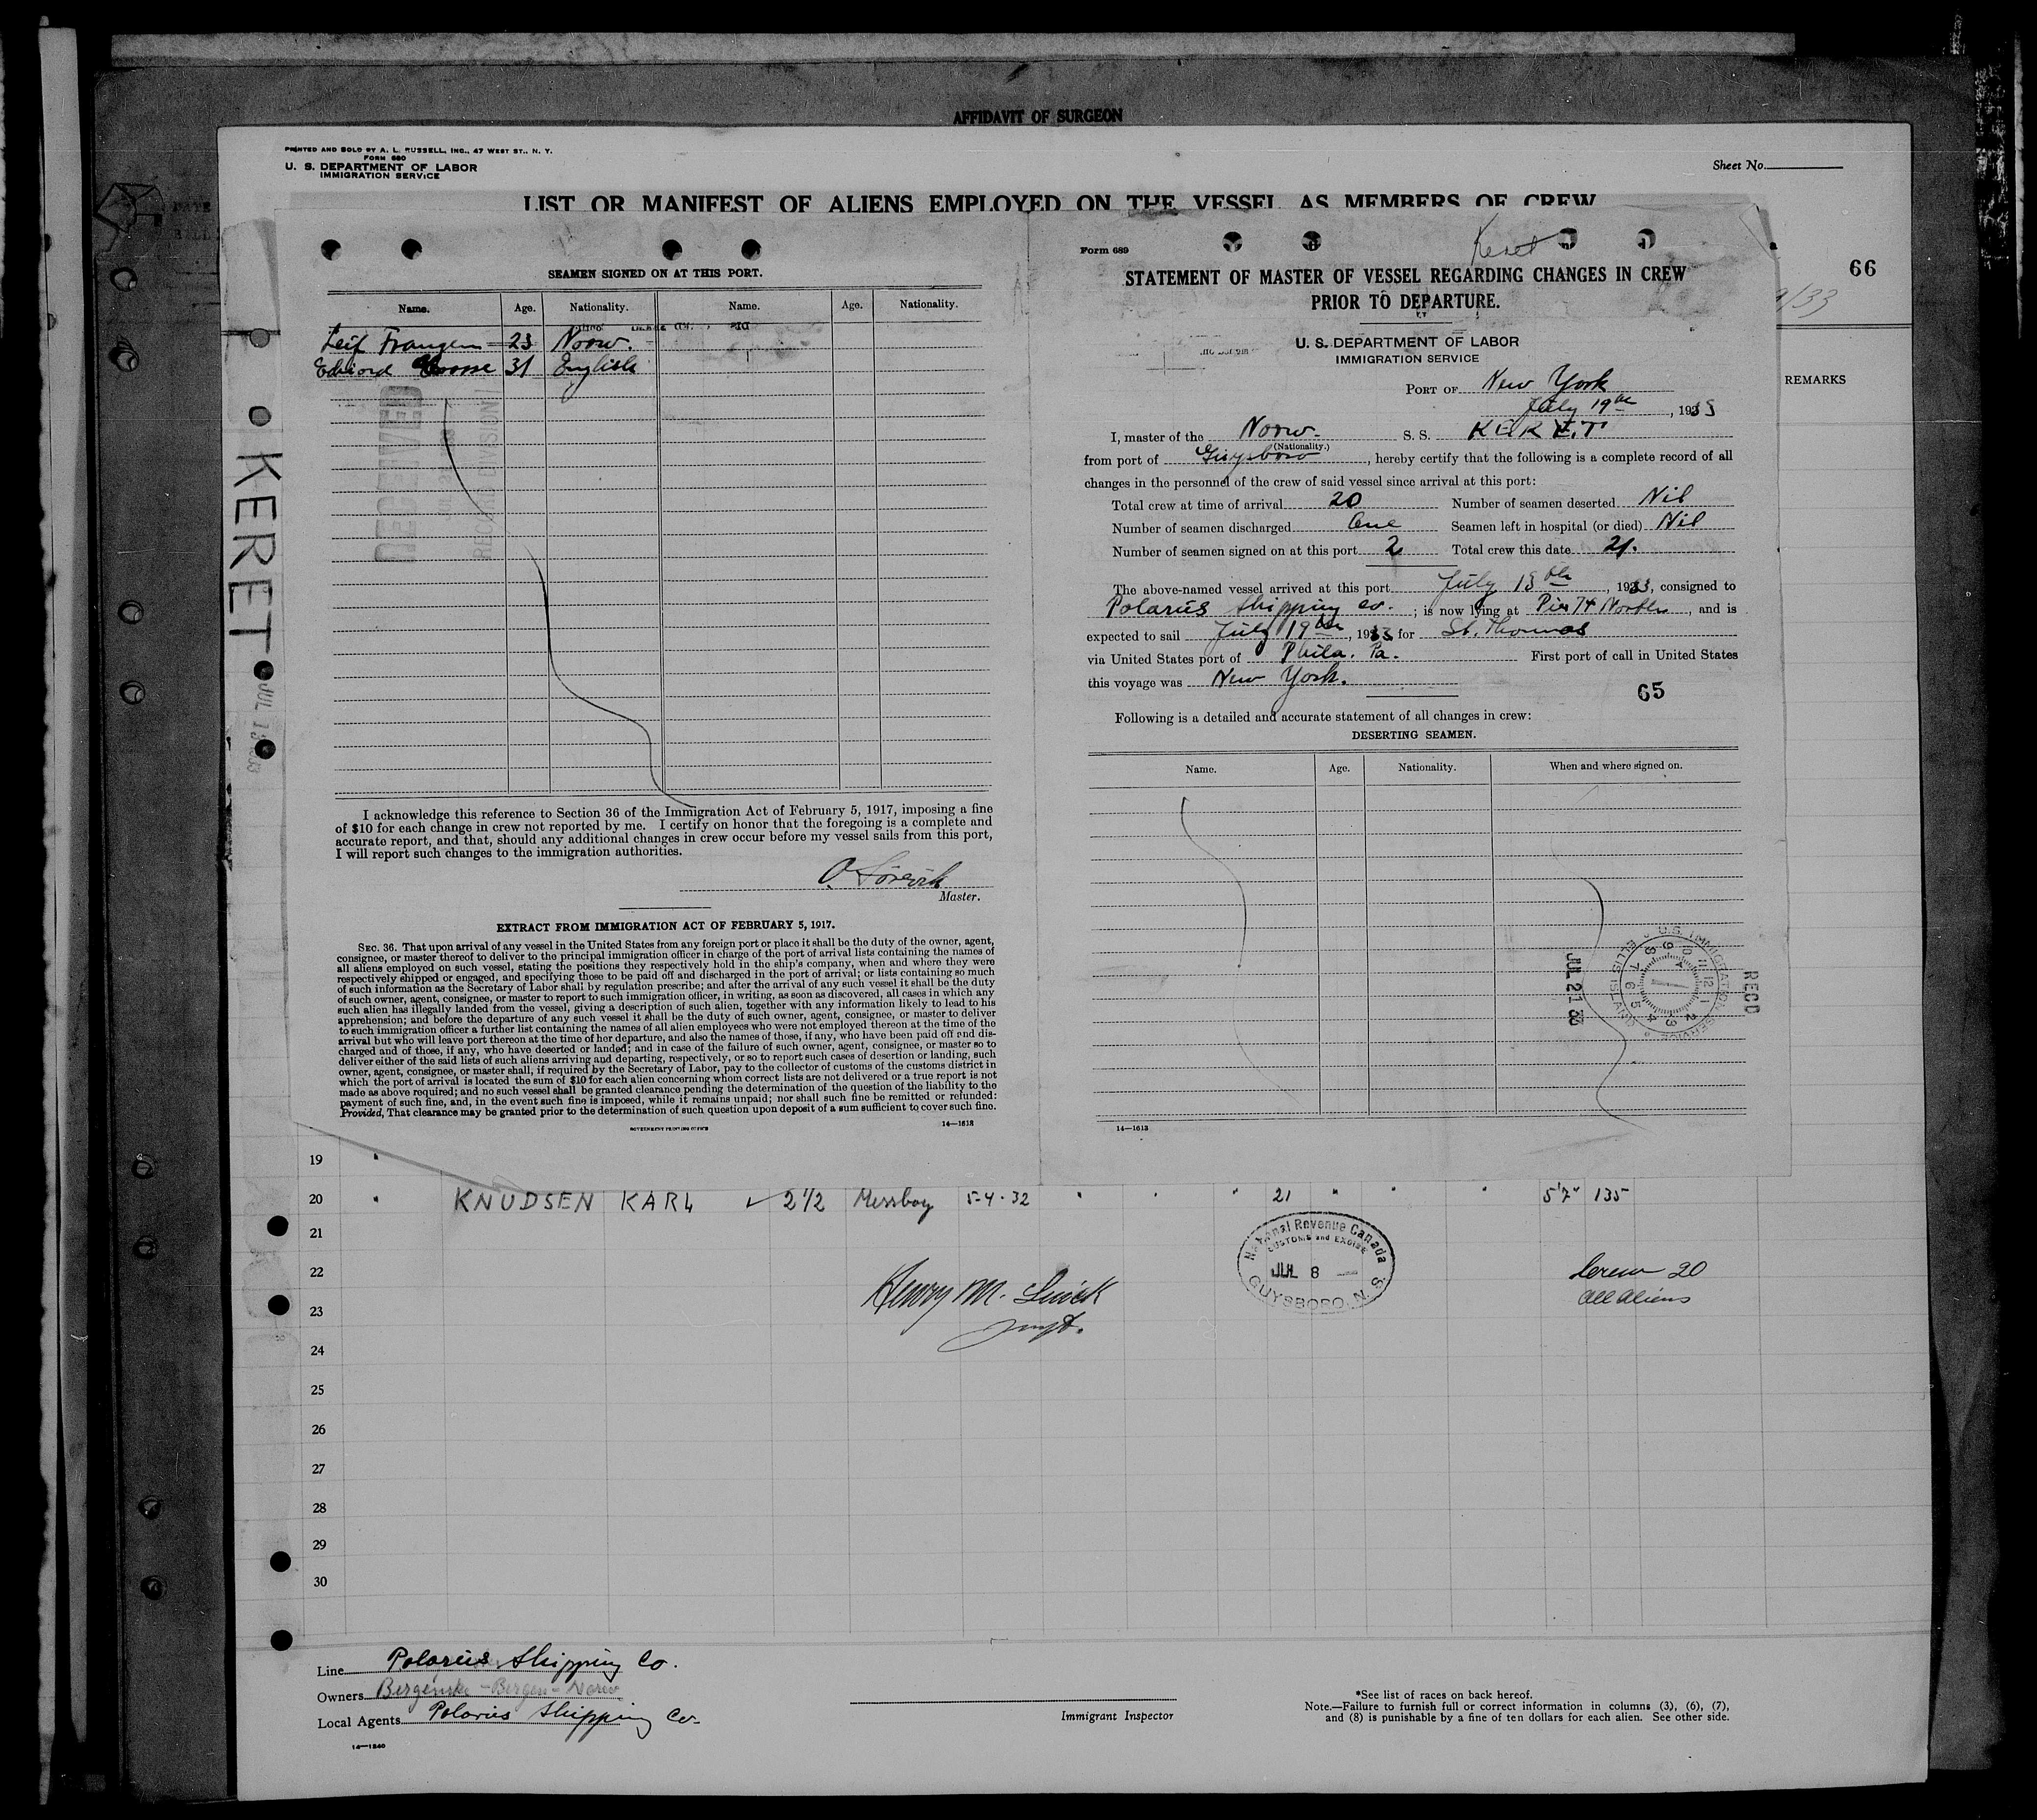 AFFIDAVIT OF SURGEON
PRINTED AND SOLD BY A. L. RUSSELL, INC., 47 WEST ST., N. Y.
FORM 680
U. S. DEPARTMENT OF LABOR
IMMIGRATION SERVICE
Sheet No.
LIST OR MANIFEST OF ALIENS EMPLOYED ON THE VESSEL AS MEMBERS OF CREW
66
REMARKS
KERET
SEAMEN SIGNED ON AT THIS PORT.
Name. Age. Nationality. Name. Age. Nationality.
Leif 23 Norw.
31 English
RECEIVED
I acknowledge this reference to Section 36 of the Immigration Act of February 5, 1917, imposing a fine
of $10 for each change in crew not reported by me. I certify on honor that the foregoing is a complete and
accurate report, and that, should any additional changes in crew occur before my vessel sails from this port,
I will report such changes to the immigration authorities.
Master.
EXTRACT FROM IMMIGRATION ACT OF FEBRUARY 5, 1917.
SEC. 36. That upon arrival of any vessel in the United States from any foreign port or place it shall be the duty of the owner, agent,
consignee, or master thereof to deliver to the principal immigration officer in charge of the port of arrival lists containing the names of
all aliens employed on such vessel, stating the positions they respectively hold in the ship's company, when and where they were
respectively shipped or engaged, and specifying those to be paid off and discharged in the port of arrival; or lists containing so much
of such information as the Secretary of Labor shall by regulation prescribe; and after the arrival of any such vessel it shall be the duty
of such owner, agent, consignee, or master to report to such immigration officer, in writing, as soon as discovered, all cases in which any
such alien has illegally landed from the vessel, giving a description of such alien, together with any information likely to lead to his
apprehension; and before the departure of any such vessel it shall be the duty of such owner, agent, consignee, or master to deliver
to such immigration officer a further list containing the names of all alien employees who were not employed thereon at the time of the
arrival but who will leave port thereon at the time of her departure, and also the names of those, if any, who have been paid off and dis-
charged and of those, if any, who have deserted or landed; and in case of the failure of such owner, agent, consignee, or master so to
deliver either of the said lists of such aliens arriving and departing, respectively, or so to report such cases of desertion or landing, such
owner, agent, consignee, or master shall, if required by the Secretary of Labor, pay to the collector of customs of the customs district in
which the port of arrival is located the sum of $10 for each alien concerning whom correct lists are not delivered or a true report is not
made as above required; and no such vessel shall be granted clearance pending the determination of the question of the liability to the
payment of such fine, and, in the event such fine is imposed, while it remains unpaid; nor shall such fine be remitted or refunded:
Provided, That clearance may be granted prior to the determination of such question upon deposit of a sum sufficient to cover such fine.
GOVERNMENT PRINTING OFFICE
14—1613
Keret
Form 689
STATEMENT OF MASTER OF VESSEL REGARDING CHANGES IN CREW
PRIOR TO DEPARTURE.
U. S. DEPARTMENT OF LABOR
IMMIGRATION SERVICE
PORT OF New York
July 19th, 1933
I, master of the Norw. S. S. KERET
(Nationality.)
from port of Guysboro, hereby certify that the following is a complete record of all
changes in the personnel of the crew of said vessel since arrival at this port:
Total crew at time of arrival 20 Number of seamen deserted Nil
Number of seamen discharged One Seamen left in hospital (or died) Nil
Number of seamen signed on at this port 2 Total crew this date 21.
The above-named vessel arrived at this port July 13th, 1933, consigned to
Polarus Shipping Co.; is now lying at Pier 74 North, and is
expected to sail July 19th, 1933 for St. Thomas
via United States port of Phila. Pa. First port of call in United States
this voyage was New York.
65
Following is a detailed and accurate statement of all changes in crew:
DESERTING SEAMEN.
Name. Age. Nationality. When and where signed on.
U.S. IMMIGRATION SERVICE
ELLIS ISLAND
RECD
JUL 21 33
14—1613
19
20 " KNUDSEN KARL ✓ 2 1/2 Messboy 5-4-32 " " " 21 " " " 5'7" 135
21
22
23
24
25
26
27
28
29
30
Henry M.
National Revenue Canada
CUSTOMS and EXCISE
JUL 8
GUYSBORO, N. S.
Crew 20
all aliens
Line Polarus Shipping Co.
Owners Bergenske - Bergen - Norw
Local Agents Polarus Shipping Co.
14—1240
Immigrant Inspector
*See list of races on back hereof.
Note.—Failure to furnish full or correct information in columns (3), (6), (7),
and (8) is punishable by a fine of ten dollars for each alien. See other side.